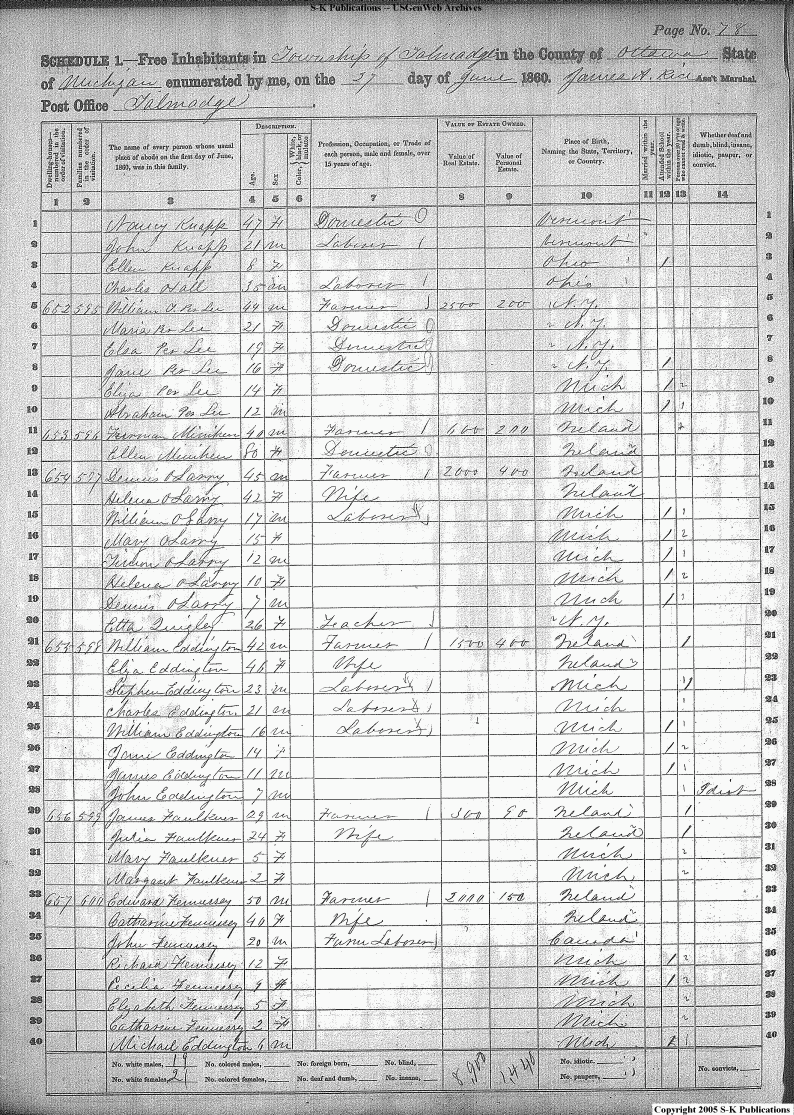 S-K Publications -- USGenWeb Archives
Page No. 78
SCHEDULE 1.—Free Inhabitants in Township of Talmadge in the County of Ottawa State
of Michigan enumerated by me, on the 27 day of June 1860. James A. Rice Ass't Marshal.
Post Office Talmadge.
Dwelling-houses numbered in the order of visitation. Families numbered in the order of visitation. The name of every person whose usual place of abode on the first day of June, 1860, was in this family. DESCRIPTION. Age. Sex. Color, White, black, or mulatto. Profession, Occupation, or Trade of each person, male and female, over 15 years of age. VALUE OF ESTATE OWNED. Value of Real Estate. Value of Personal Estate. Place of Birth, Naming the State, Territory, or Country. Married within the year. Attended School within the year. Whether deaf and dumb, blind, insane, idiotic, pauper, or convict.
1 2 3 4 5 6 7 8 9 10 11 12 13 14
1 Nancy Knapp 47 F Domestic Vermont 1
2 John Knapp 21 m Laborer Vermont 2
3 Ellen Knapp 8 F Ohio 1 3
4 Charles 35 m Laborer Ohio 4
5 652 595 William Per Lee 49 m Farmer 2500 200 N.Y. 5
6 Maria Per Lee 21 F Domestic N.Y. 6
7 Elsa Per Lee 19 F Domestic N.Y. 7
8 Jane Per Lee 16 F Domestic N.Y. 1 8
9 Eliza Per Lee 14 F Mich 1 9
10 Abraham Per Lee 12 m Mich 1 10
11 653 596 Miniken 40 m Farmer 600 200 Ireland 11
12 Ellen Miniken 80 F Domestic Ireland 12
13 654 597 Dennis OLarry 45 m Farmer 2000 400 Ireland 13
14 Helena OLarry 42 F Wife Ireland 14
15 William OLarry 17 m Laborer Mich 1 15
16 Mary OLarry 15 F Mich 1 16
17 OLarry 12 m Mich 1 17
18 Helena OLarry 10 F Mich 1 18
19 Dennis OLarry 7 m Mich 1 19
20 Etta Quigley 26 F Teacher N.Y. 20
21 655 598 William Eddington 42 m Farmer 1500 400 Ireland 1 21
22 Eliza Eddington 46 F Wife Ireland 22
23 Stephen Eddington 23 m Laborer Mich 1 23
24 Charles Eddington 21 m Laborer Mich 24
25 William Eddington 16 m Laborer Mich 1 25
26 Jane Eddington 14 F Mich 1 26
27 James Eddington 11 m Mich 1 27
28 John Eddington 7 m Mich Idiot 28
29 656 599 James Faulkner 29 m Farmer 300 90 Ireland 1 29
30 Julia Faulkner 24 F Wife Ireland 1 30
31 Mary Faulkner 5 F Mich 31
32 Margaret Faulkner 2 F Mich 32
33 657 600 Edward Fennessy 50 m Farmer 2000 150 Ireland 33
34 Catharine Fennessy 40 F Wife Ireland 34
35 John Fennessy 20 m Farm Laborer Canada 35
36 Richard Fennessy 12 F Mich 1 36
37 Cecelia Fennessy 9 F Mich 1 37
38 Elizabeth Fennessy 5 F Mich 38
39 Catharine Fennessy 2 F Mich 39
40 Michael Eddington 6 m Mich 1 40
No. white males, 19 No. colored males, No. foreign born, No. blind, 8,900 1,440 No. idiotic, No. convicts,
No. white females, 21 No. colored females, No. deaf and dumb, No. insane, No. paupers,
Copyright 2005 S-K Publications